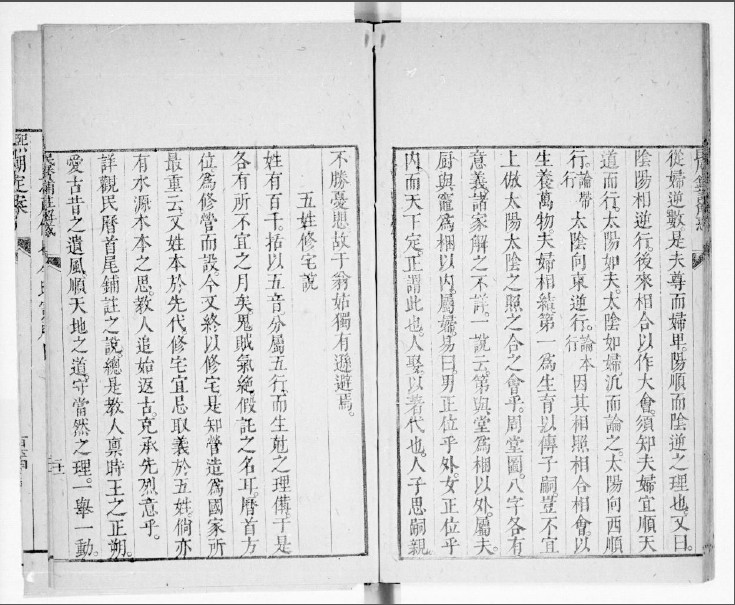 從婦逆數是夫尊而婦卑陽順而陰逆之理也又曰
陰陽相逆行後來相合以作大會須知夫婦宜順天
道而行太陽如夫太陰如婦況而論之太陽向西順
行論帶行太陰向東逆行論本行因其相照相合相會以
生養萬物夫婦相結第一為生育以傳子嗣豈不宜
上倣太陽太陰之照之合之會乎周堂圖八字各有
意義諸家解之不詳一說云第與堂為梱以外屬夫
厨與竈為梱以內屬婦易曰男正位乎外女正位乎
內而天下定正謂此也人娶以著代也人子思嗣親
不勝憂悲故于翁姑獨有遜避焉
五姓修宅說
姓有百千括以五音分屬五行而生尅之理備于是
各有所不宜之月矣鬼賊氣絕假託之名耳曆首方
位為修營而設今文終以修宅是知營造為國家所
最重云又姓本於先代修宅宜忌取義於五姓倘亦
有水源木本之思教人追始返古克承先烈意乎
詳觀民曆首尾鋪註之說總是教人稟時王之正朔
愛古昔之遺風順天地之道守當然之理一舉一動
民曆鋪註解惑
熙朝定案